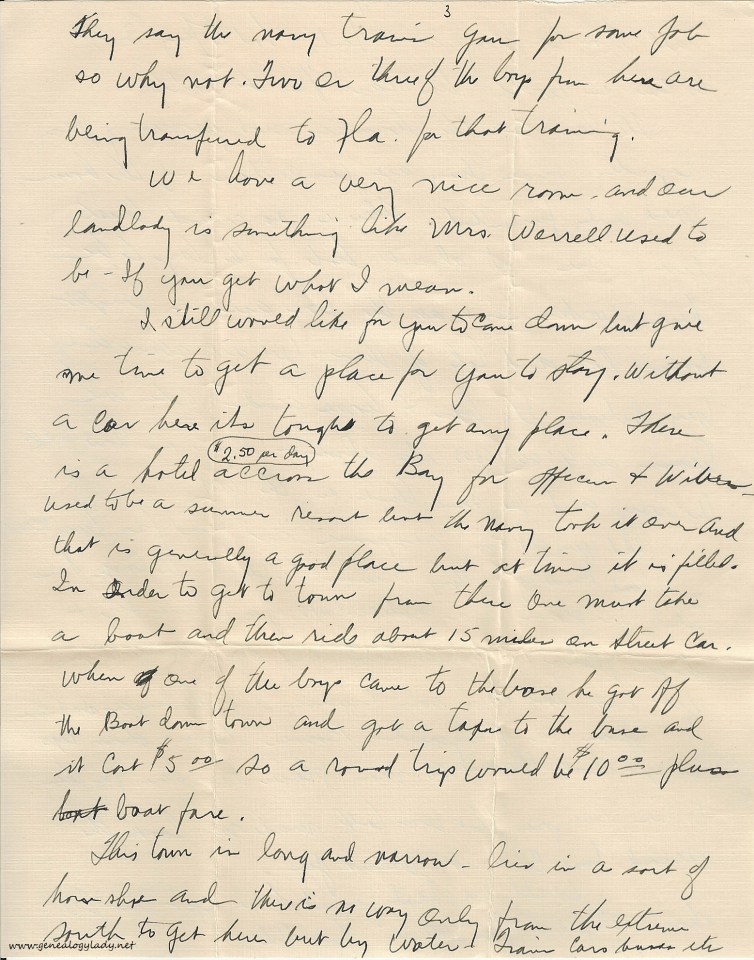 3
They say the navy trains you for some job
so why not. Two or three of the boys from here are
being transfered to Fla. for that training.
We have a very nice room - and our
landlady is something like Mrs. Worrell used to
be - If you get what I mean.
I still would like for you to come down but give
me time to get a place for you to stay. Without
a car here its tough to get any place. There
$2.50 per day
is a hotel accross the Bay for officers + Wives
used to be a summer resort but the navy took it over and
that is generally a good place but at times it is filled.
In order to get to town from there one must take
a boat and then ride about 15 miles on street car.
When one of the boys came to the base he got off
the Boat down town and got a to the base and
it cost $5.00 so a round trip would be $10.00 plus
boat boat fare.
This town is long and narrow - lies in a sort of
horse shoe and there is no way only from the extreme
south to get here but by water - Train cars buses etc
www.genealogylady.net